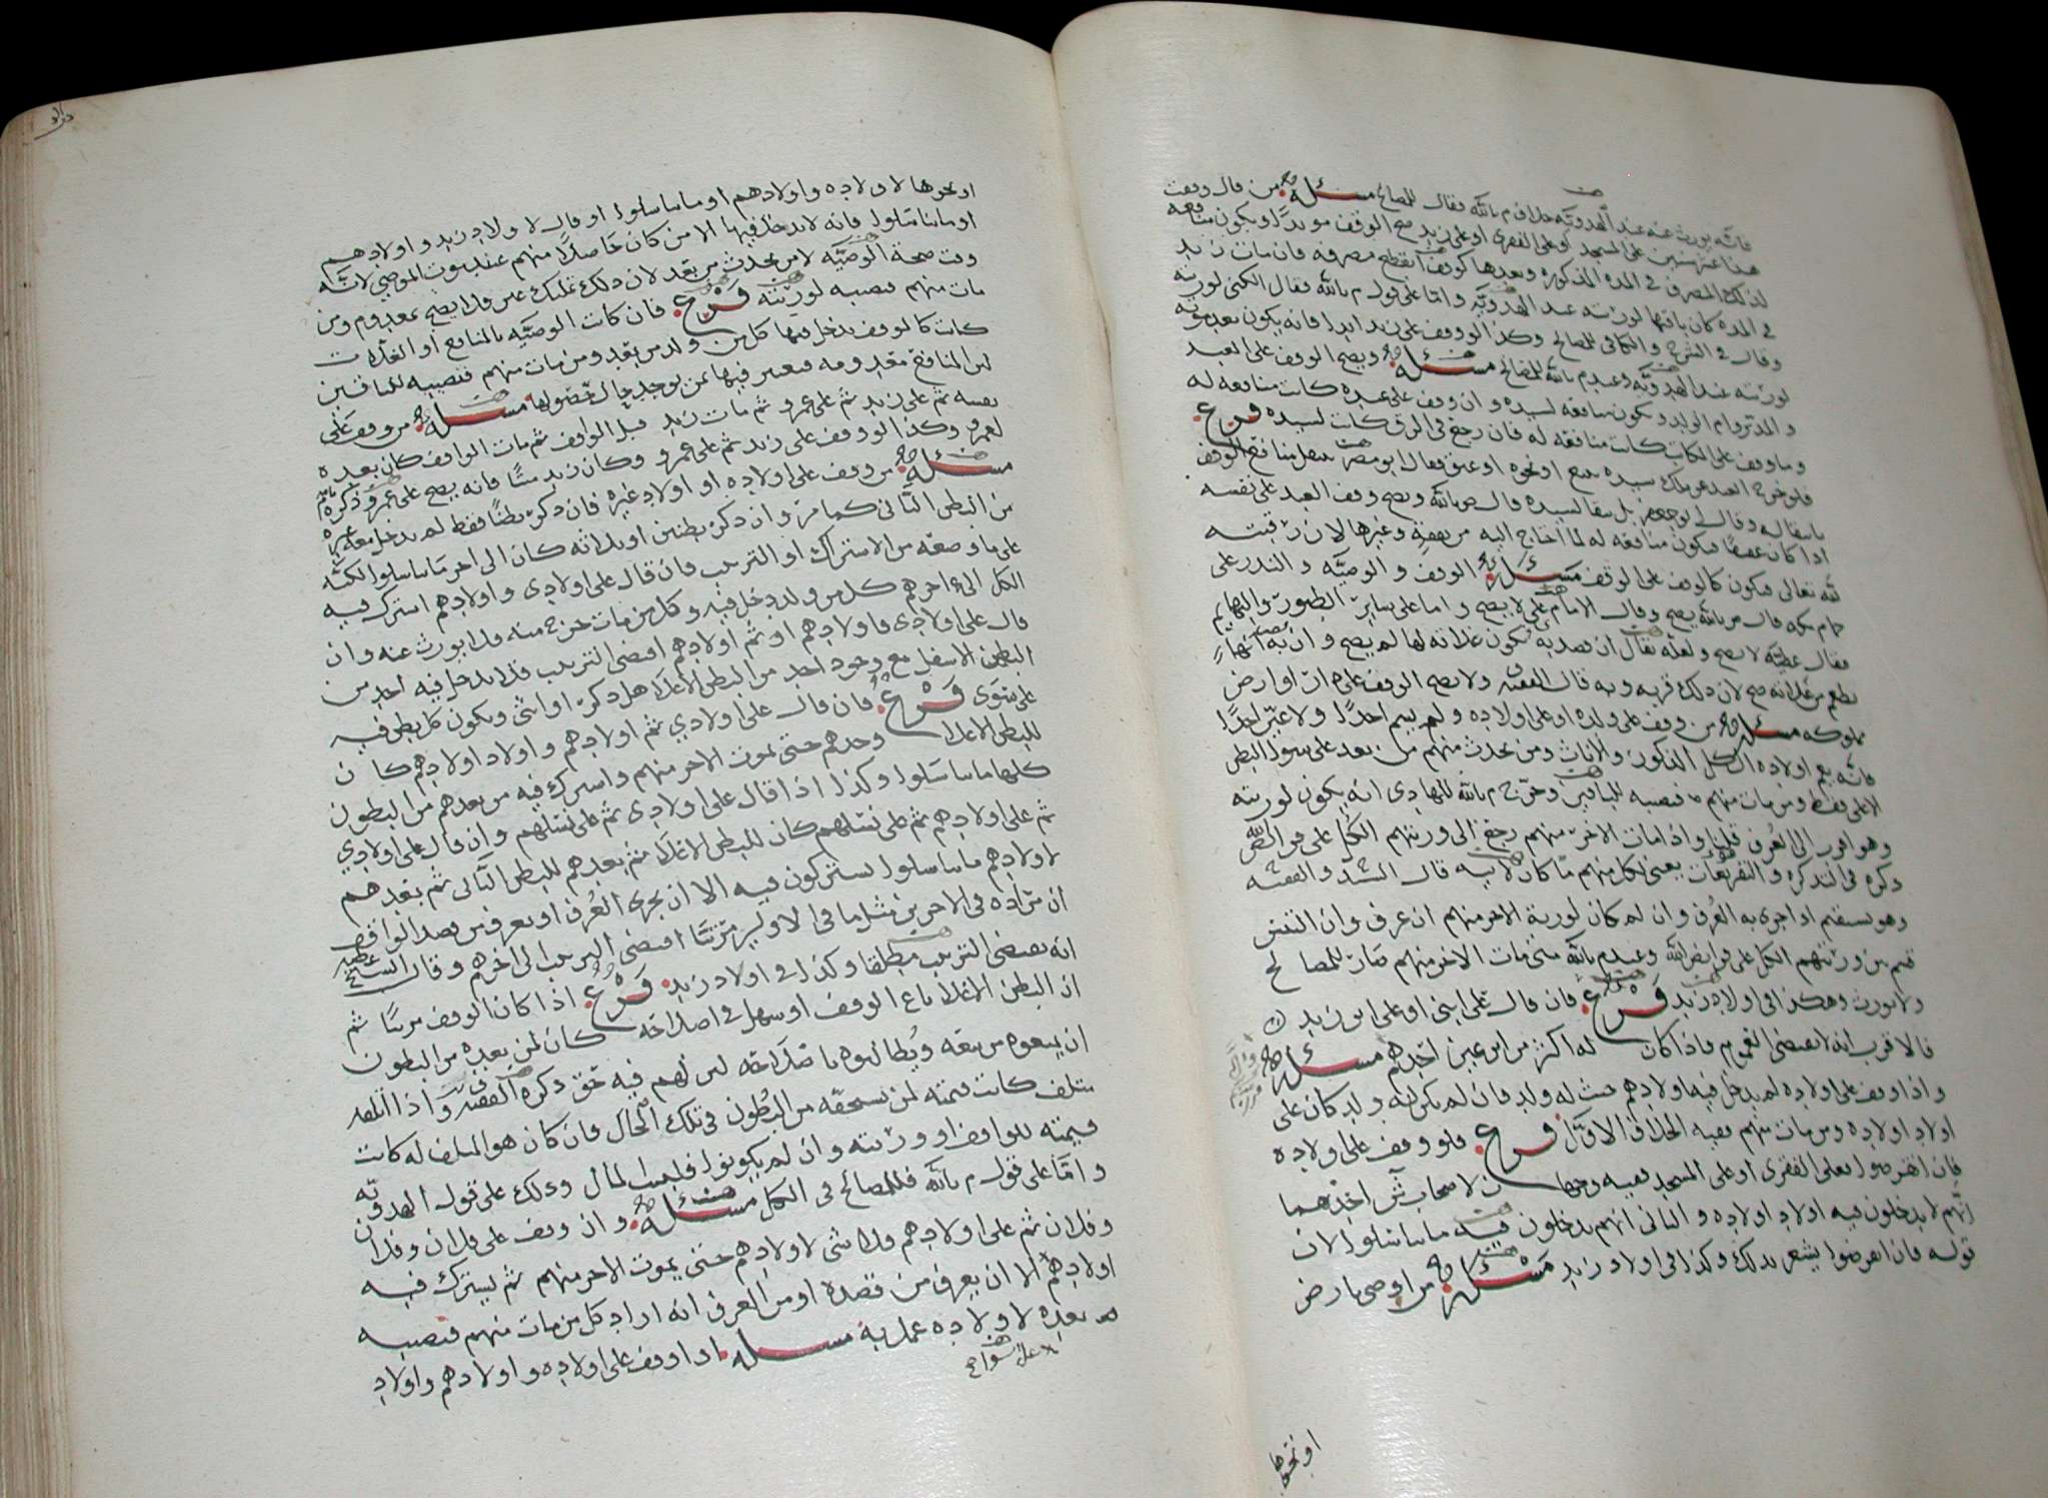 فانه يورث عنه عند الهدويه خلاف م بالله فقال للمصالح مسئلة من قال وقفت
هذا عشر سنين على المسجد او على الفقرى او على زيد صح الوقف موبدا ويكون منافعه
لذلك المصرف في المده المذكوره وبعدها كوقف انقطع مصرفه فان مات زيد
في المده كان باقيها لورثته عند الهدويه واما على قول م بالله فقال الكنى لورثته
وقال في الشرح والكافي للمصالح وكذا لو وقف على زيد ابدا فانه يكون بعد موته
لورثته عند الهدويه وعند م بالله للمصالح مسئلة ويصح الوقف على العبد
والمدبر وام الولد ويكون منافعه لسيده وان وقف على عبده كانت منافعه له
وما وقف على المكاتب كانت منافعه له فان رجع في الرق كانت لسيده فرع
فلو خرج العبد عن ملك سيده ببيع او نحوه او عتق فقال ابو مضر ينتقل منافع الوقف
بانتقاله وقال ابو جعفر بل يبقا لسيده قال ص بالله ويصح وقف العبد على نفسه
اذا كان فيكون منافعه له لما احتاج اليه من نفقة وغيرها لان رقبته
لله تعالى فيكون كالوقف على الوقف مسئلة الوقف والوصيه والنذر على
حمام مكه قال م بالله يصح وقال الامام علي لا يصح واما على ساير الطيور والبهايم
فقال عطيه لا يصح ولعله يقال ان قصد به تكون غلاته لها لم يصح وان قصد به انها
تطعم من غلاته صح لان ذلك قربه وبه قال الفقيه ولا يصح الوقف على دار او ارض
مملوكه مسئلة من وقف على ولده او على اولاده ولم يسم احدا ولا عين احدا
فانه يعم اولاده الكل الذكور والاناث ومن يحدث منهم من بعد على سوى البطن
الاعلى فقط ومن مات منهم فنصيبه للباقين وخرج م بالله للهادي انه يكون لورثته
وهو اقرب الى العرف قلنا واذا مات الاخر منهم رجع الى ورثتهم الكل على فرايض الله
ذكره في التذكره والتفريعات يعني لكل منهم ما كان لابيه قال السيد والفقيه
وهو يستقيم اذا جرى به العرف وان لم كان لورثة الاخر منهم ان عرف وان التبس
قسم بين ورثتهم الكل على فرايض الله وعند م بالله متى مات الاخر منهم صار للمصالح
ولا يورث وهكذا في اولاد زيد فرع فان قال على ابني او على ابن زيد
فالاقرب انه لا يقتضي العموم فاذا كان له اكثر من ابن عين احدهم مسئلة
واذا وقف على اولاده لم يدخل فيه اولادهم حيث له ولد فان لم يكن له ولد كان على
اولاد اولاده ومن مات منهم ففيه الخلاف الاول فرع فلو وقف على اولاده
فان انقرضوا فعلى الفقرى او على المسجد ففيه وجهان لاصحاب ش احدهما
انهم لا يدخلون فيه اولاد اولاده والثاني انهم يدخلون فيه ما تناسلوا لان
قوله فان انقرضوا يشعر بذلك وكذا في اولاد زيد مسئلة من اوصى بارض
او نحوها
او نحوها لاولاده واولادهم او ما تناسلوا او قال لاولاد زيد واولادهم
او ما تناسلوا فانه لا يدخل فيها الا من كان حاصلا منهم عند موت الموصي لانه
وقت صحة الوصيه لا من يحدث من بعد لان ذلك تمليك عين فلا يصح لمعدوم ومن
مات منهم فنصيبه لورثته فرع فان كانت الوصيه بالمنافع او الغلات
كانت كالوقف يدخل فيها كل من ولد من بعد ومن مات منهم فنصيبه للباقين
لان المنافع معدومه فيعتبر فيها بمن يوجد حال حصولها مسئلة من وقف على
نفسه ثم على زيد ثم على عمرو ثم مات زيد قبل الواقف ثم مات الواقف كان بعده
لعمرو وكذا لو وقف على زيد ثم على عمرو وكان زيد ميتا فانه يصح على عمرو ذكره م بالله
مسئلة من وقف على اولاده او اولاد غيره فان ذكر بطنا فقط لم يدخل معه غيره
من البطن الثاني كما مر وان ذكر بطنين او ثلاثه كان الى اخر ما تناسلوا لكنه
على ما وضعه من الاشتراك او الترتيب فان قال على اولادي واولادهم اشترك فيه
الكل الى اخرهم كل من ولد دخل فيه وكل من مات خرج منه فلا يورث عنه وان
قال على اولادي فاولادهم او ثم اولادهم اقتضى الترتيب فلا يدخل فيه احد من
البطن الاسفل مع وجود احد من البطن الاعلا هل ذكر او انثى ويكون كل بطن فيه
على سوى فرع فان قال على اولادي ثم اولادهم واولاد اولادهم كان
للبطن الاعلا وحدهم حتى يموت الاخر منهم واشترك فيه من بعدهم من البطون
كلها ما تناسلوا وكذا اذا قال على اولادي ثم على نسلهم وان قال على اولادي
ثم على اولادهم ثم على نسلهم كان للبطن الاعلا ثم بعدهم للبطن الثاني ثم بعدهم
لاولادهم ما تناسلوا يشتركون فيه الا ان يجري العرف او يعرف من قصد الواقف
ان مراده في الاخرين مثل ما في الاولين مرتبا اقتضى الترتيب الى اخرهم وقال الشيخ عطيه
انه يقتضي الترتيب مطلقا وكذا في اولاد زيد فرع اذا كان الوقف مرتبا ثم
ان البطن الاعلا باع الوقف او تساهل في اصلاحه كان لمن بعده من البطون
ان يمنعوه من بيعه ويطالبوه باصلاحه لان لهم فيه حق ذكره الفقيه واذا اتلفه
متلف كانت قيمته لمن يستحقه من البطون في تلك الحال فان كان هو المتلف له كانت
قيمته للواقف او ورثته وان لم يكونوا فلبيت المال وذلك على قول الهدويه
واما على قول م بالله فللمصالح في الكل مسئلة واذا وقف على فلان وفلان
وفلان ثم على اولادهم فلا شي لاولادهم حتى يموت الاخر منهم ثم يشترك فيه
اولادهم الا ان يعرف من قصده او من العرف انه اراد كل من مات منهم فنصيبه
من بعده لاولاده عمل به مسئله اذا وقف على اولاده واولادهم واولاد